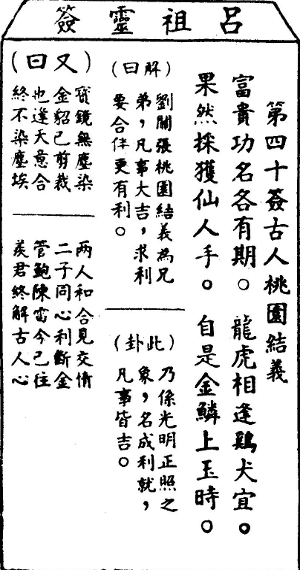 呂祖靈簽
第四十簽古人桃園結義
富貴功名各有期。 龍虎相逢鷄犬宜。
果然採獲仙人手。 自是金鱗上玉時。
(解曰)
劉關張桃園結義為兄
弟,凡事大吉,求利
要合伴更有利。
(此卦)
乃係光明正照之
象,名成利就,
凡事皆吉。
(又曰)
寶鏡無塵染
金貂已剪裁
也逢天意合
終不染塵埃
兩人和合見交情
二子同心利斷金
管鮑陳雷今已往
羨君終解古人心